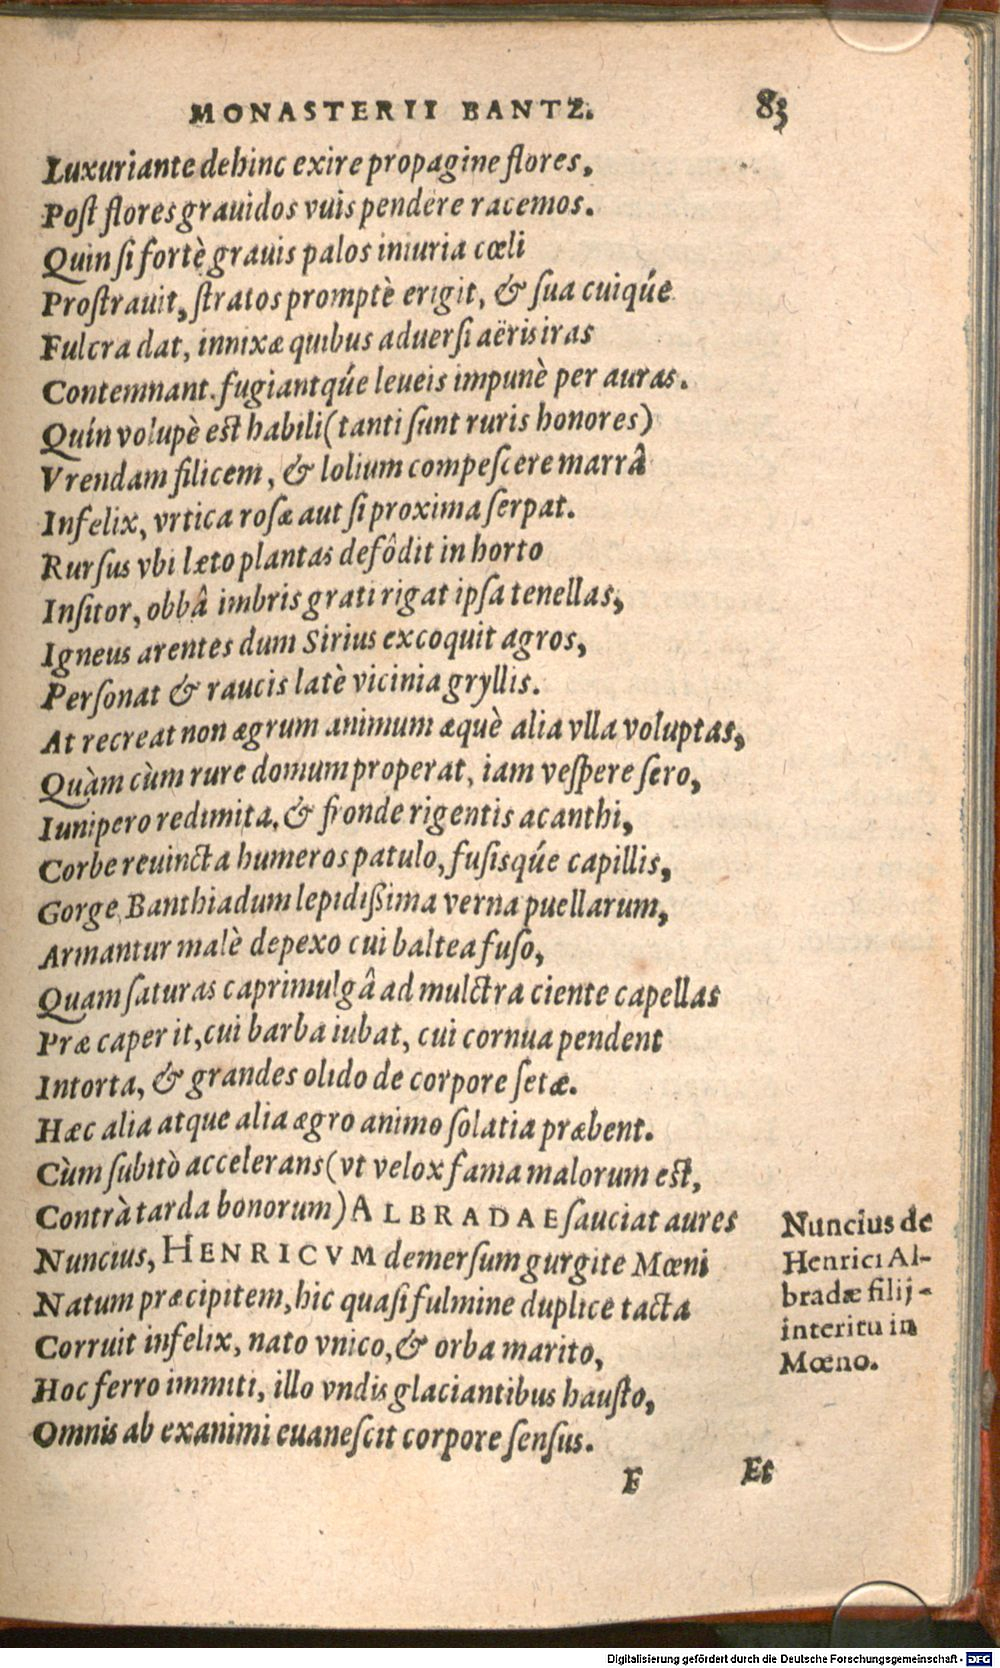 MONASTERII BANTZ. 83
Luxuriante dehinc exire propagine flores,
Post flores grauidos vuis pendere racemos.
Quin si fortè grauis palos iniuria cœli
Prostrauit, stratos promptè erigit, & sua cuiq́ue
Fulcra dat, innixæ quibus aduersi aëris iras
Contemnant, fugiantq́ue leueis impunè per auras.
Quin volupè est habili (tanti sunt ruris honores)
Vrendam filicem, & lolium compescere marrâ
Infelix, vrtica rosæ aut si proxima serpat.
Rursus vbi læto plantas defôdit in horto
Insitor, obbâ imbris grati rigat ipsa tenellas,
Igneus arentes dum Sirius excoquit agros,
Personat & raucis latè vicinia gryllis.
At recreat non ægrum animum æquè alia vlla voluptas,
Quàm cùm rure domum properat, iam vespere sero,
Iunipero redimita, & fronde rigentis acanthi,
Corbe reuincta humeros patulo, fusisq́ue capillis,
Gorge Banthiadum lepidißima verna puellarum,
Armantur malè depexo cui baltea fuso,
Quam saturas caprimulgâ ad mulctra ciente capellas
Præ caper it, cui barba iubat, cui cornua pendent
Intorta, & grandes olido de corpore setæ.
Hæc alia atque alia ægro animo solatia præbent.
Cùm subitò accelerans (vt velox fama malorum est,
Contrà tarda bonorum) ALBRADAE sauciat aures
Nuncius, HENRICVM demersum gurgite Mœni
Natum præcipitem, hic quasi fulmine duplice tacta
Corruit infelix, nato vnico, & orba marito,
Hoc ferro immiti, illo vndis glaciantibus hausto,
Omnis ab exanimi euanescit corpore sensus.
Nuncius de
Henrici Al-
bradæ filij
interitu in
Mœno.
F Et
Digitalisierung gefördert durch die Deutsche Forschungsgemeinschaft - DFG